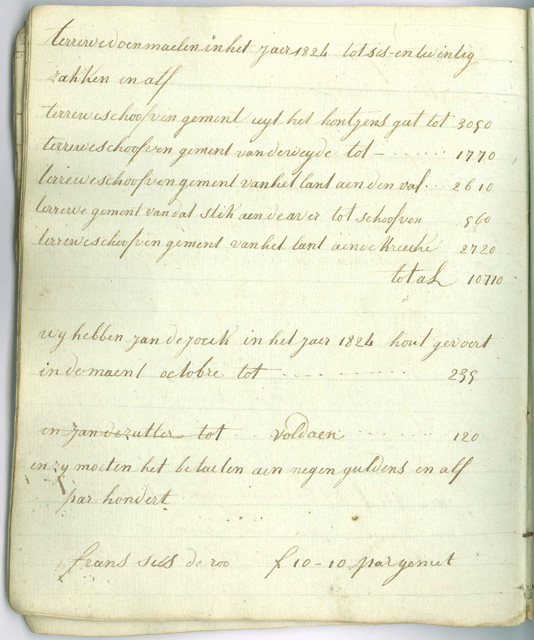 terrewe doen maelen in het jaer 1824 tot ses-en twintig
zakken en alf
terrewe schoofven gement uyt het hontzens gat tot 3050
terrewe schoofven gement van de weyde tot - 1770
terrewe schoofven gement van het lant aen den val 2610
terrewe gement van dat stik aen de aver tot schoofven 560
terrewe schoofven gement van het lant aen de kreeke 2720
total 10710
wy hebben jan de in het jaer 1824 hout gevoert
in de maent octobre tot 235
en jan de zutter tot voldaen 120
en zy moeten het betaelen aen negen guldens en alf
par hondert
frans de roo f 10-10 par gemet